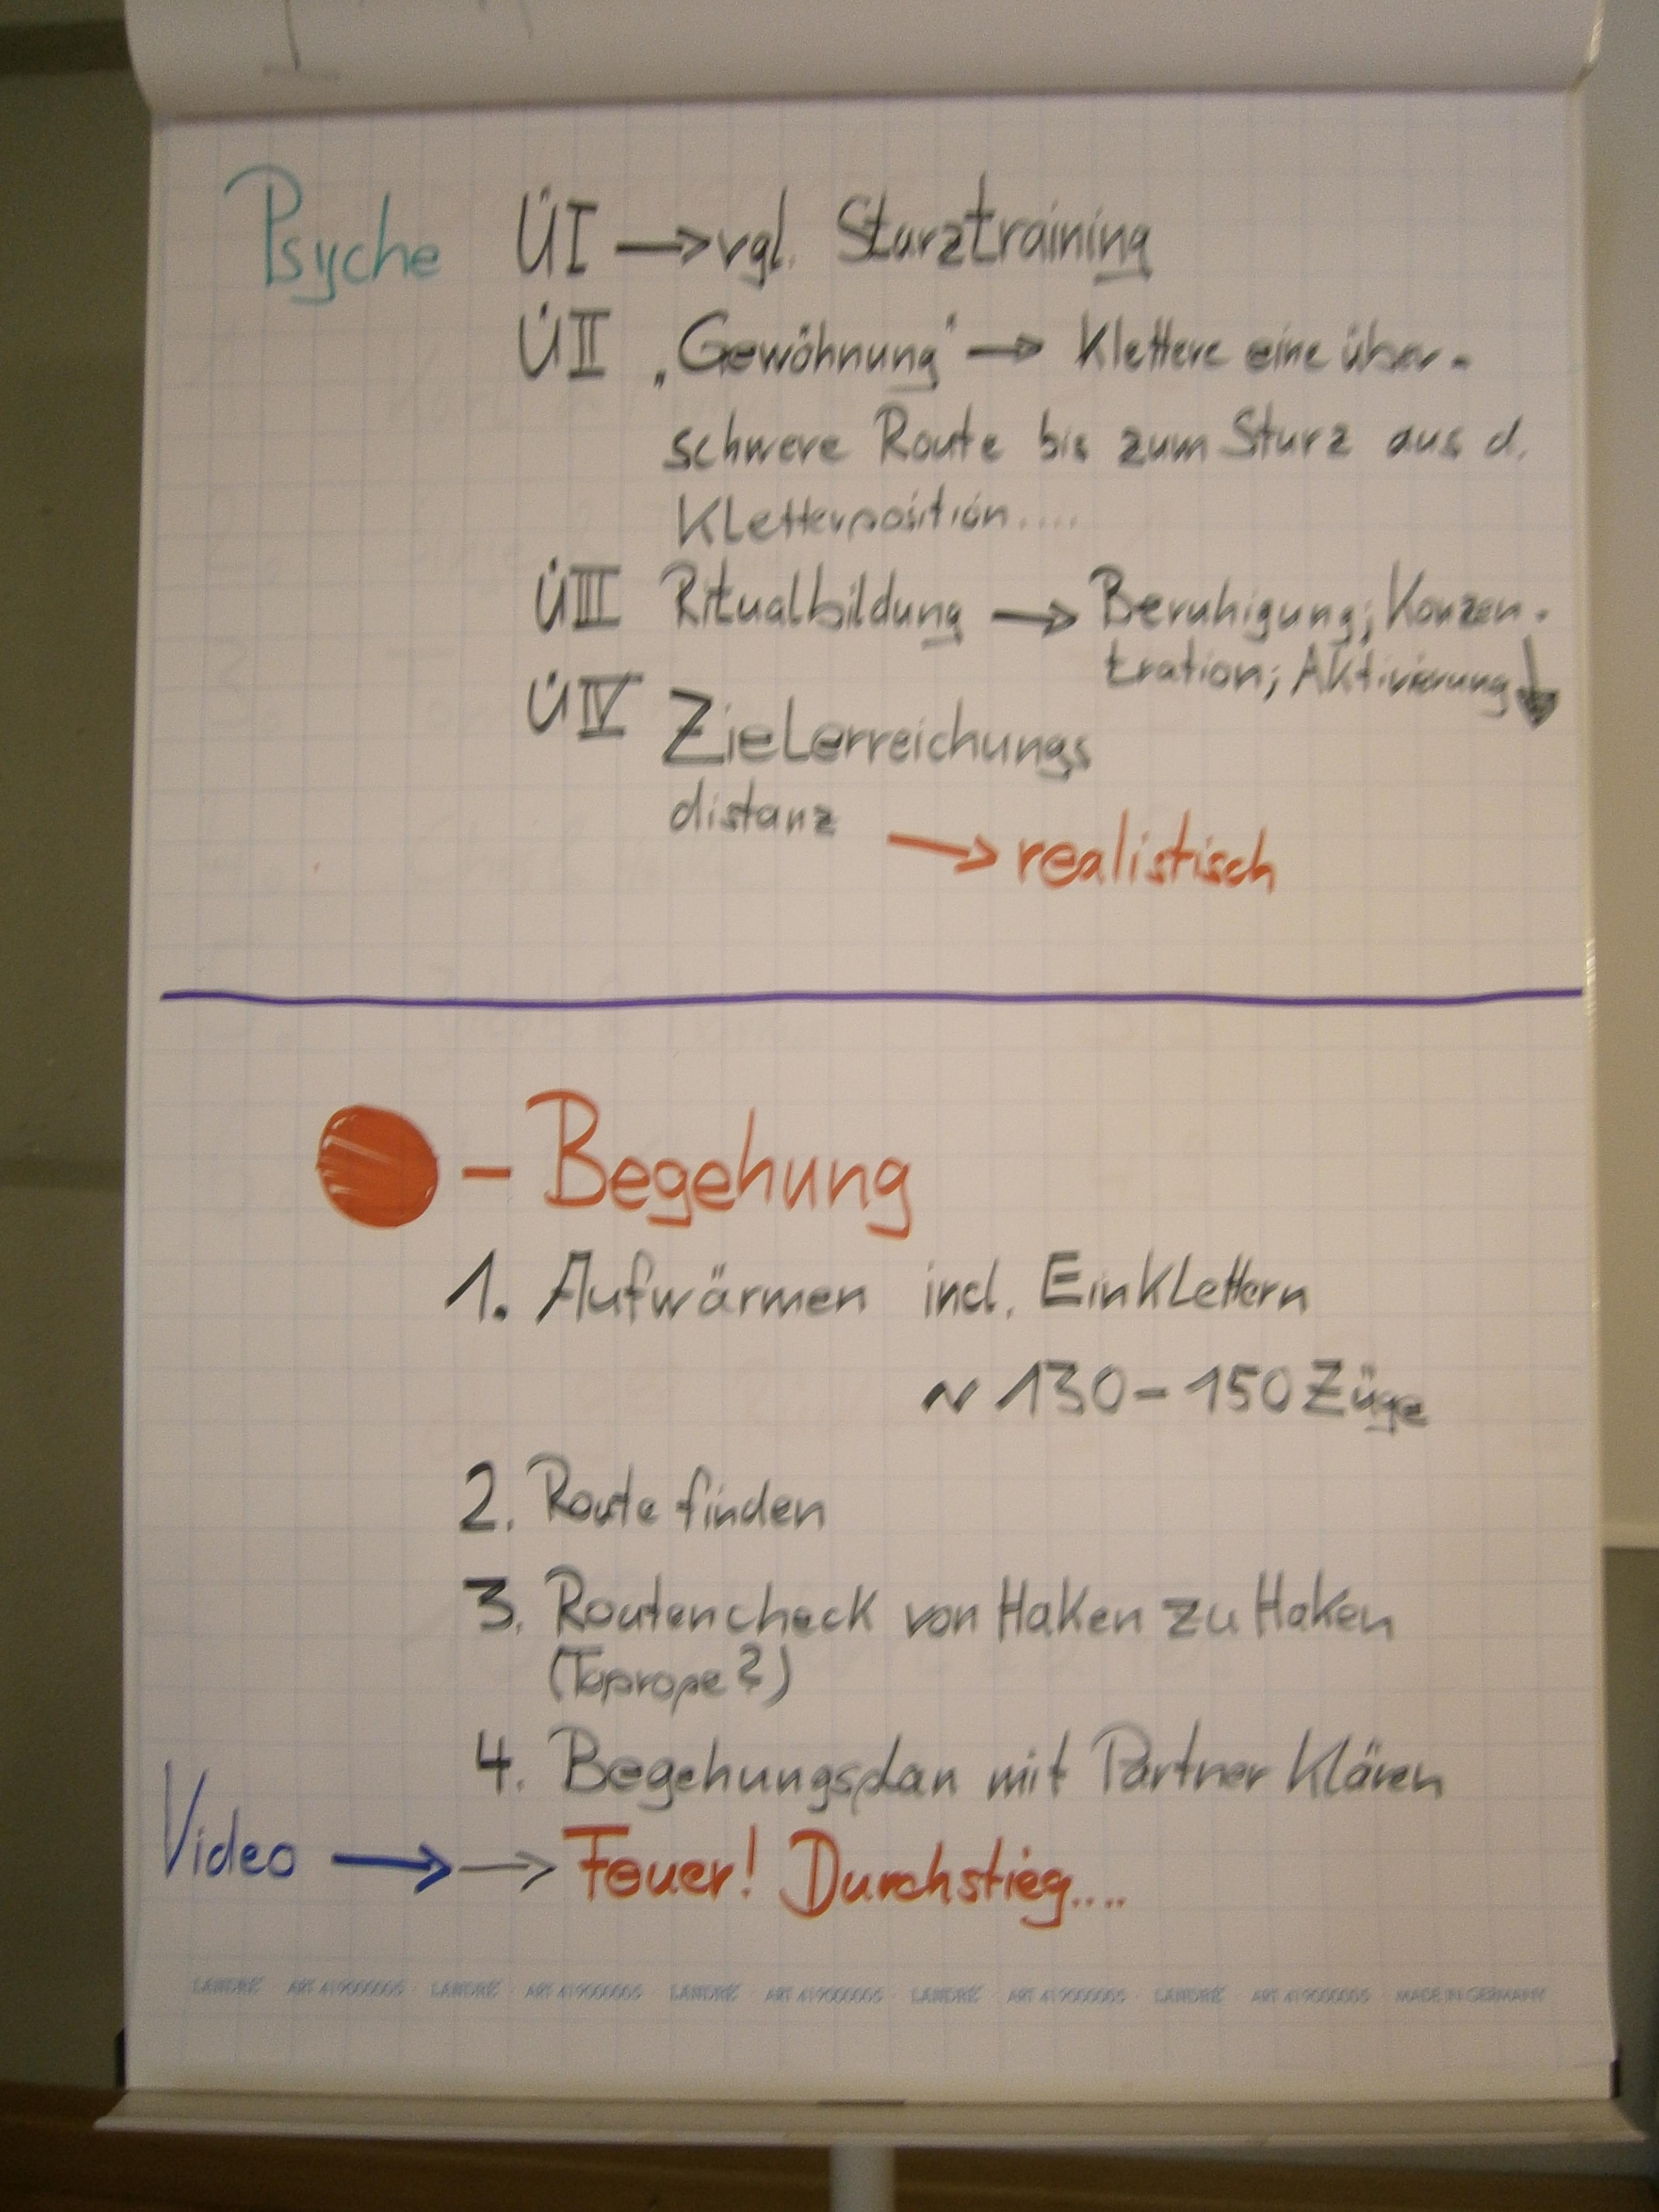 Psyche ÜI → vgl. Sturztraining
ÜII „Gewöhnung" → Klettere eine über-
schwere Route bis zum Sturz aus d.
Kletterposition....
ÜIII Ritualbildung → Beruhigung; Konzen-
tration; Aktivierung
ÜIV Zielerreichungs
distanz
→ realistisch
- Begehung
1. Aufwärmen incl. Einklettern
~ 130 - 150 Züge
2. Route finden
3. Routencheck von Haken zu Haken
(Toprope?)
4. Begehungsplan mit Partner Klären
Video → → Feuer! Durchstieg....
LANDRÉ ART 419000005 · LANDRÉ · ART 419000005 LANDRÉ · ART 419000005 · LANDRÉ · ART 419000005 · LANDRÉ · ART 419000005 · MADE IN GERMANY